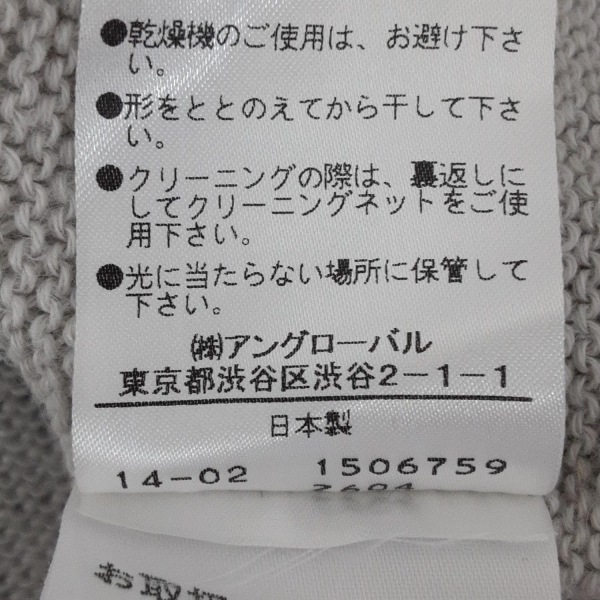 ●乾燥機のご使用は、お避け下さ
い。
●形をととのえてから干して下さ
い。
●クリーニングの際は、裏返しに
してクリーニングネットをご使
用下さい。
●光に当たらない場所に保管して
下さい。
㈱アングローバル
東京都渋谷区渋谷2-1-1
日本製
14-02 1506759
お取扱